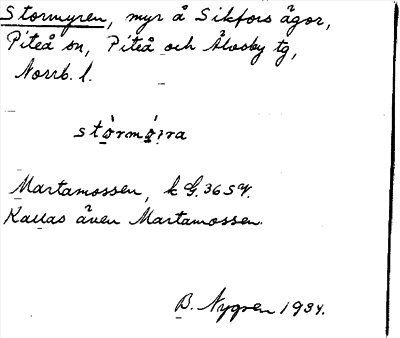 Stormyren, myr å Sikfors ägor,
Piteå sn, Piteå och Älvsby tg,
Norrb. l.
Martamossen, k G. 36 S V.
Kallas även Martamossen.
B. Nygren 1934.